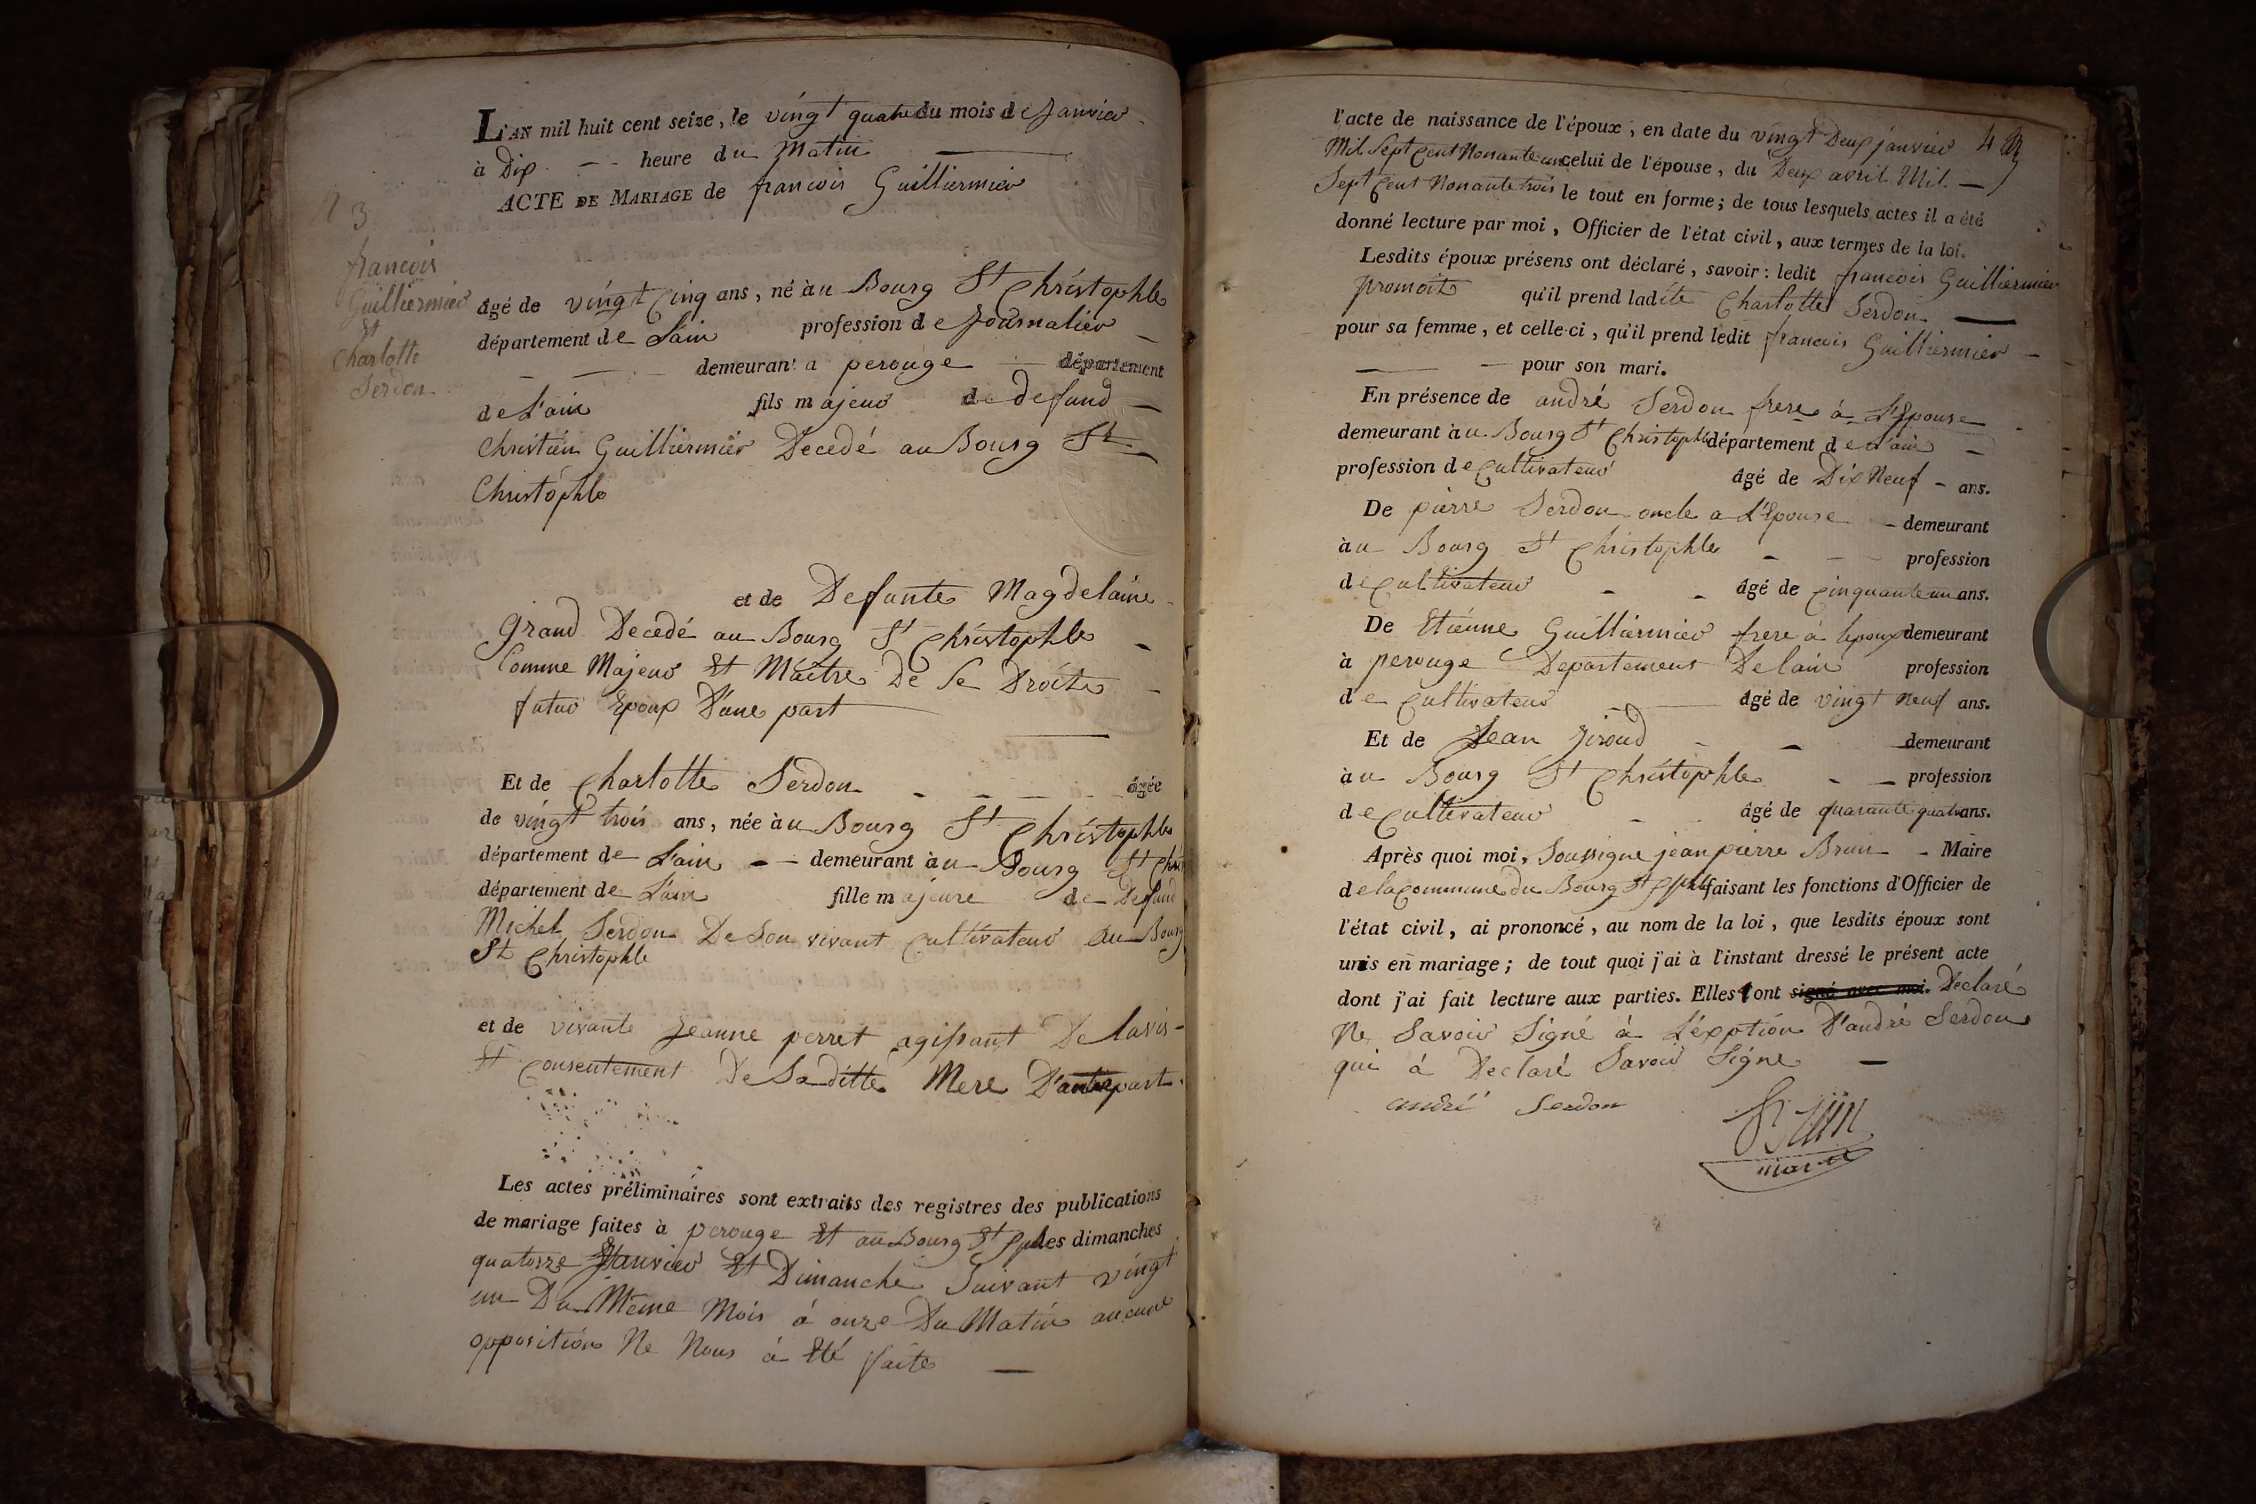 L'AN mil huit cent seize, le vingt quatre du mois de Janvier
à Dix heure du Matin
ACTE DE MARIAGE de francois Guilliermier
3
francois
Guilliermier
Et
Charlotte
Serdon
âgé de vingt Cinq ans, né àu Bourg St Christophle
département de Lain profession de Journalier
demeurant a perouge département
de L'ain fils majeur de defund
Christien Guilliermier Decedé au Bourg St
Christophle
et de Defunte Magdelaine
Grand Decedé au Bourg St Christophle
Comme Majeur Et Maitre De Se Droits
futur Epoux D'une part
Et de Charlotte Serdon âgée
de vingt trois ans, née àu Bourg St Christophle
département de L'ain demeurant àu Bourg St Chri
département de L'ain fille majeure de Defund
Michel Serdon De Son vivant Cultivateur Au Bourg
St Christophle
et de vivante Jeanne perret agissant De lavis
Et Consentement De Saditte Mere D'autre part
Les actes préliminaires sont extraits des registres des publications
de mariage faites à perouge Et au Bourg St Cphle les dimanches
quatorze Janvier Et Dimanche Suivant vingt
un Du Même Mois á onze Du Matin aucune
opposition Ne Nous á Eté faite
l'acte de naissance de l'époux, en date du vingt Deux janvier 4
Mil Sept Cent Nonante un celui de l'épouse, du Deux avril Mil
Sept Cent Nonante trois le tout en forme; de tous lesquels actes il a été
donné lecture par moi, Officier de l'état civil, aux termes de la loi.
Lesdits époux présens ont déclaré, savoir: ledit francois Guilliermier
promoit qu'il prend ladite Charlotte Serdon
pour sa femme, et celle-ci, qu'il prend ledit francois Guilliermier
pour son mari.
En présence de andré Serdon frere á L'Epouse
demeurant àu Bourg St Christophle département de L'ain
profession de Cultivateur âgé de Dix Neuf ans.
De pierre Serdon oncle a L'Epouse demeurant
àu Bourg St Christophle profession
de Cultivateur âgé de Cinquante un ans.
De Etienne Guilliermier frere á lepoux demeurant
à perouge Departement De lain profession
de Cultivateur âgé de vingt neuf ans.
Et de Jean Giroud demeurant
àu Bourg St Christophle profession
de Cultivateur âgé de quarante quatre ans.
Après quoi moi, Soussigne jean pierre Brun Maire
de la Commune du Bourg St Cphle faisant les fonctions d'Officier de
l'état civil, ai prononcé, au nom de la loi, que lesdits époux sont
unis en mariage; de tout quoi j'ai à l'instant dressé le présent acte
dont j'ai fait lecture aux parties. Elles ont signé avec moi. Declaré
Ne Savoir Signé á L'exption D'andre Serdon
qui á Declaré Savoir Signe
andré Serdon